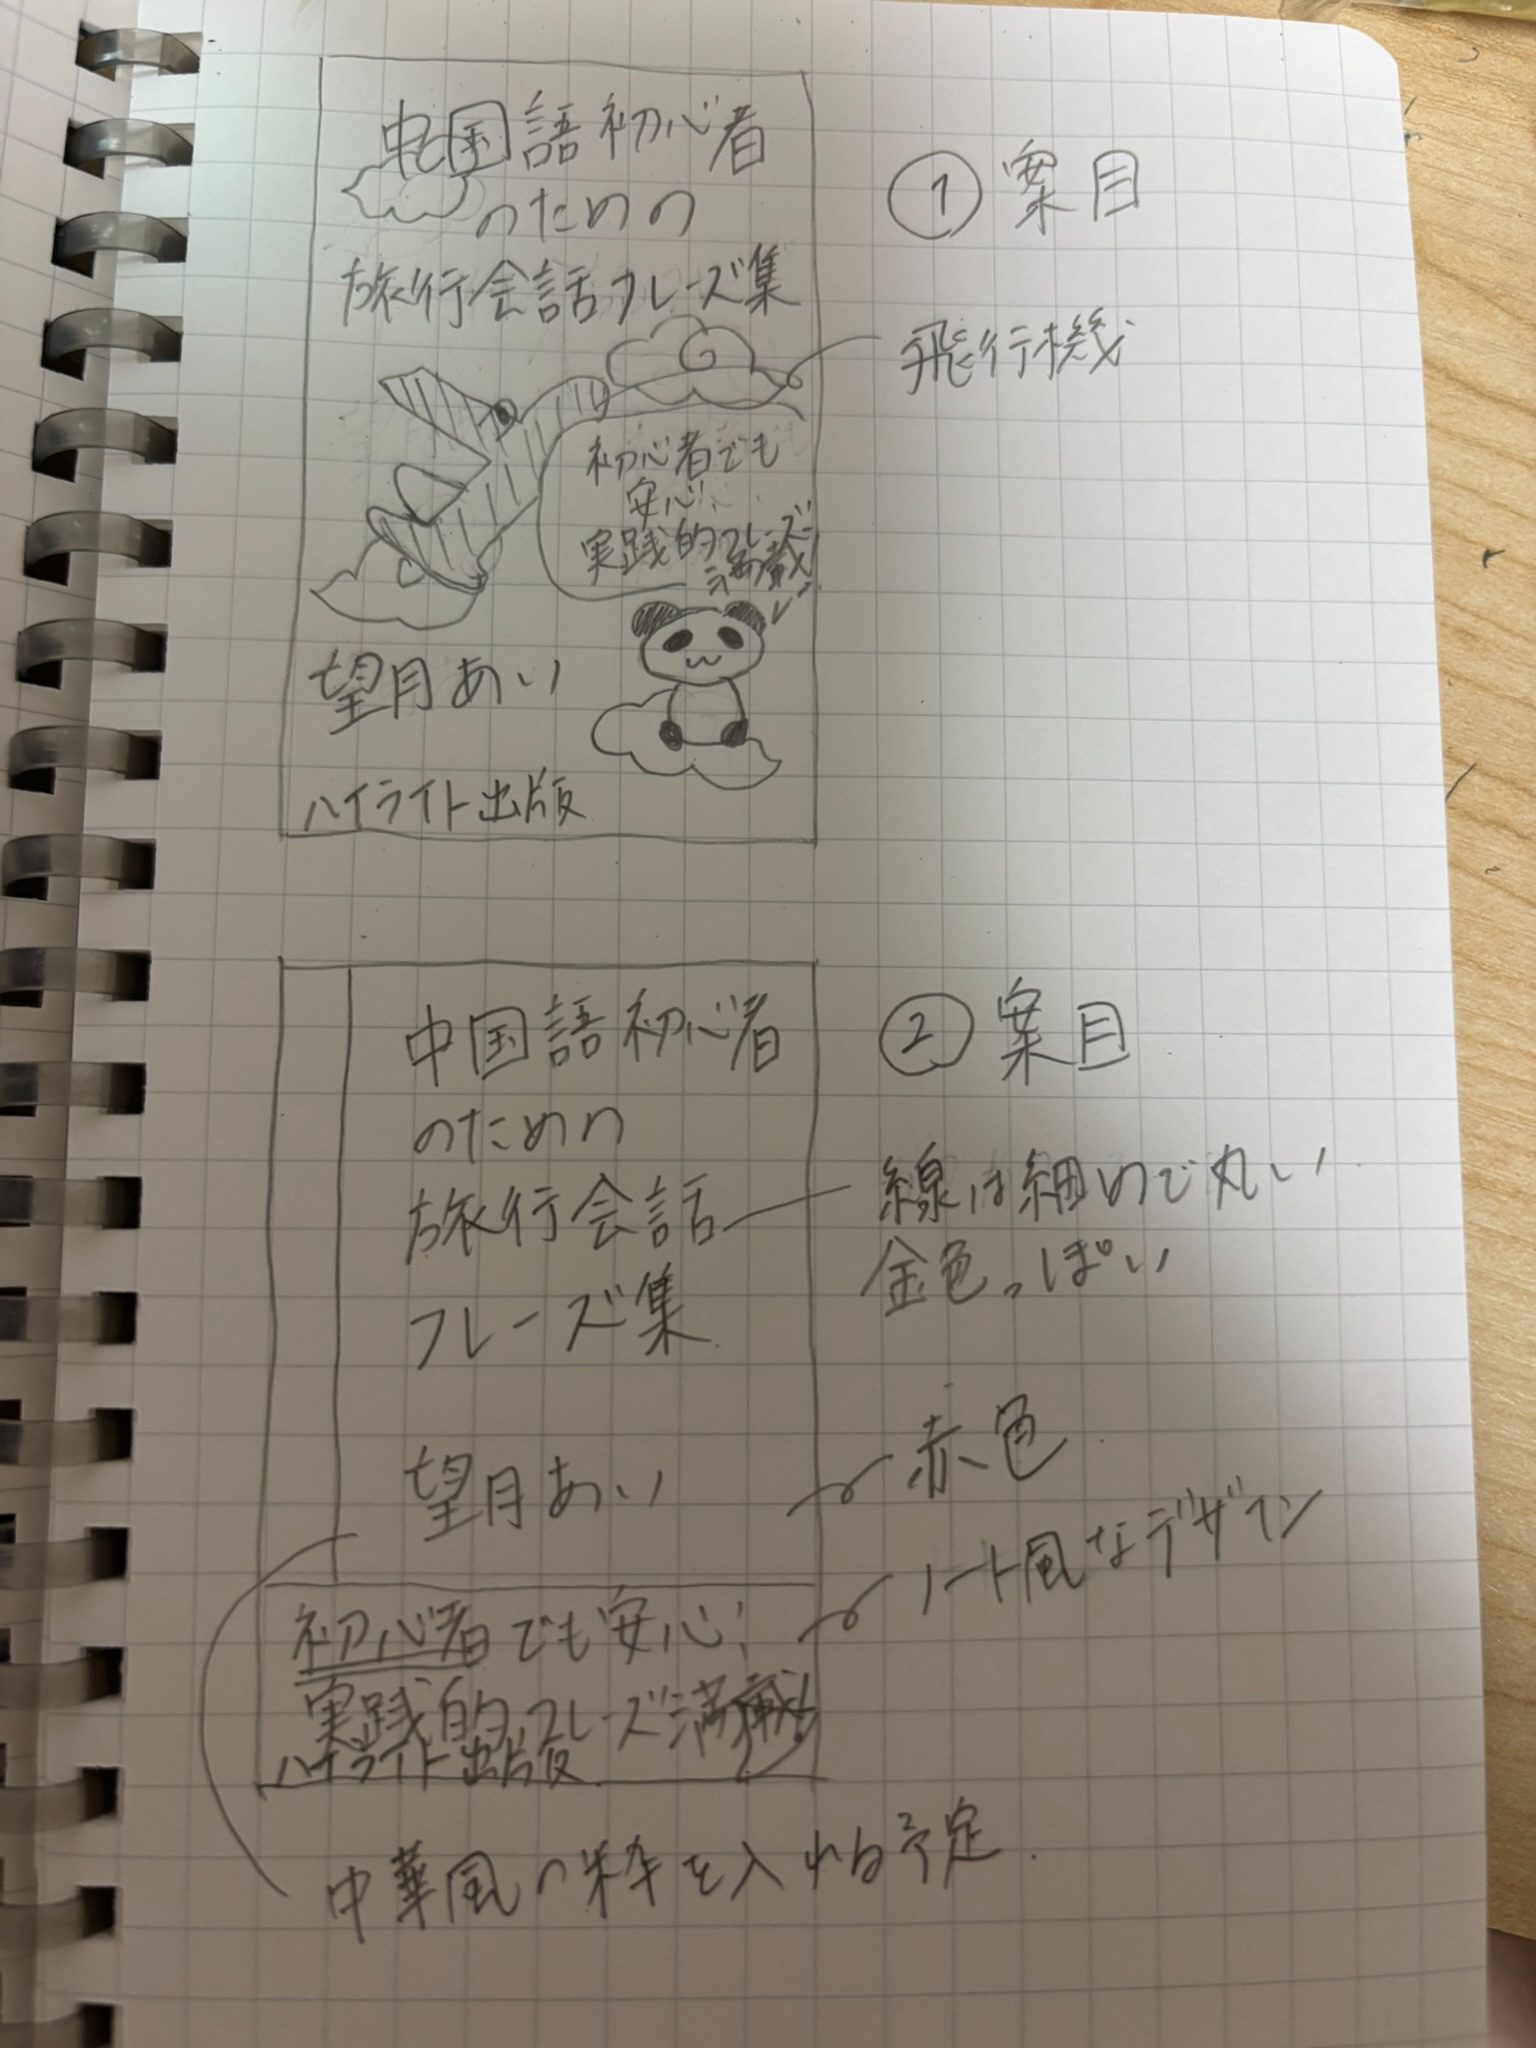 中国語初心者
のための
旅行会話フレーズ集
初心者でも
安心!
実践的フレーズ
満載!
望月あい
ハイライト出版
①案目
飛行機
中国語初心者
のための
旅行会話
フレーズ集
望月あい
初心者でも安心!
実践的フレーズ満載!
ハイライト出版
②案目
線は細めで丸い
金色っぽい
赤色
ノート風なデザイン
中華風の枠を入れる予定.